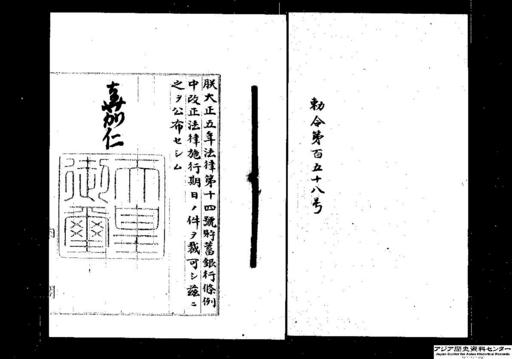 勅令第百五十八号
朕大正五年法律第十四號貯蓄銀行條例
中改正法律施行期日ノ件ヲ裁可シ茲ニ
之ヲ公布セシム
嘉仁
天皇
御璽
アジア歴史資料センター
Japan Center for Asian Historical Records